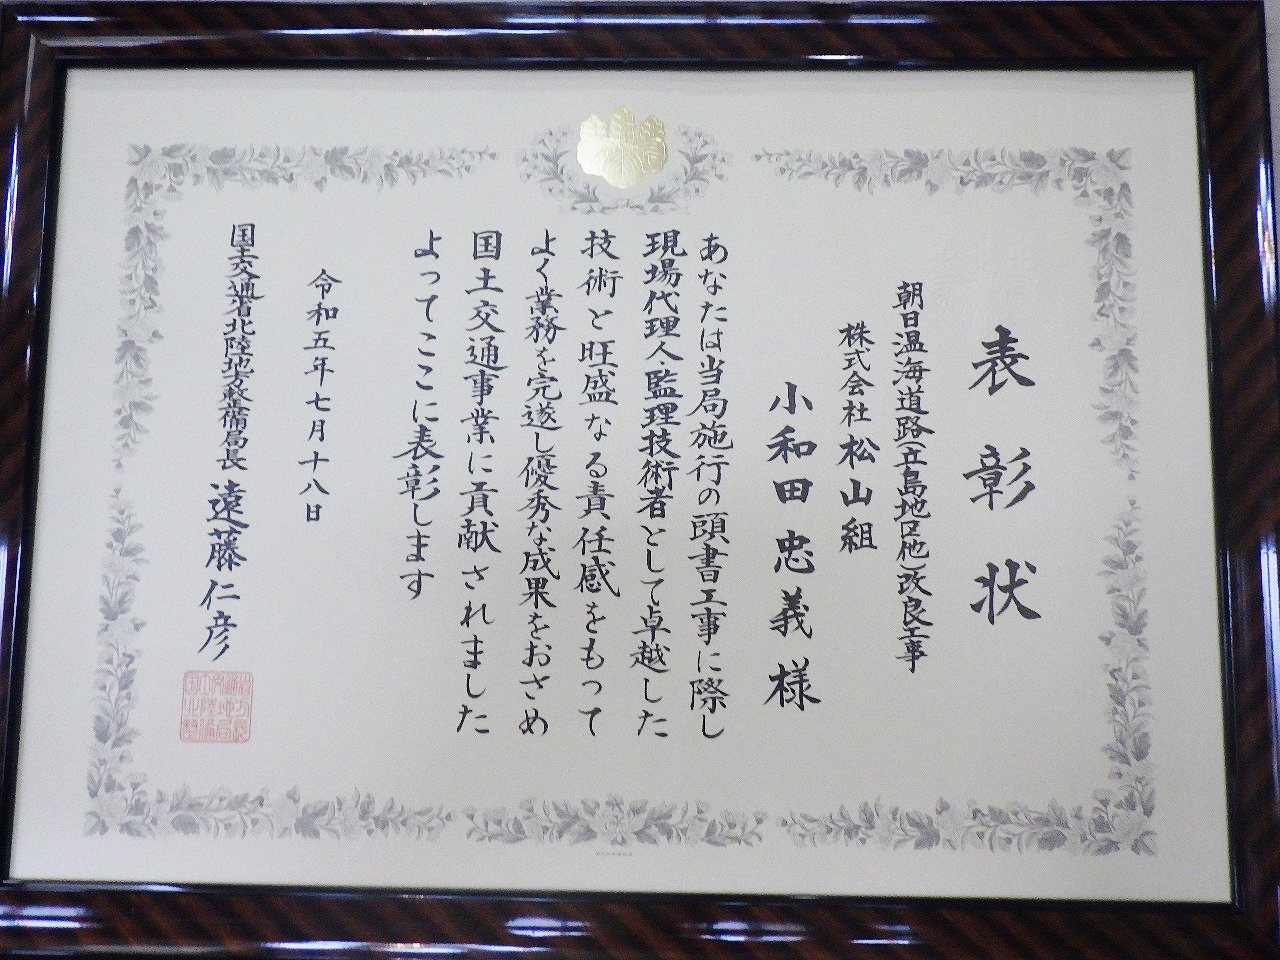 表彰状
朝日温海道路(立島地区他)改良工事
株式会社 松山組
小和田忠義様
あなたは当局施行の頭書工事に際し
現場代理人監理技術者として卓越した
技術と旺盛なる責任感をもって
よく業務を完遂し優秀な成果をおさめ
国土交通事業に貢献されました
よってここに表彰します
令和五年七月十八日
国土交通省北陸地方整備局長 遠藤仁彦